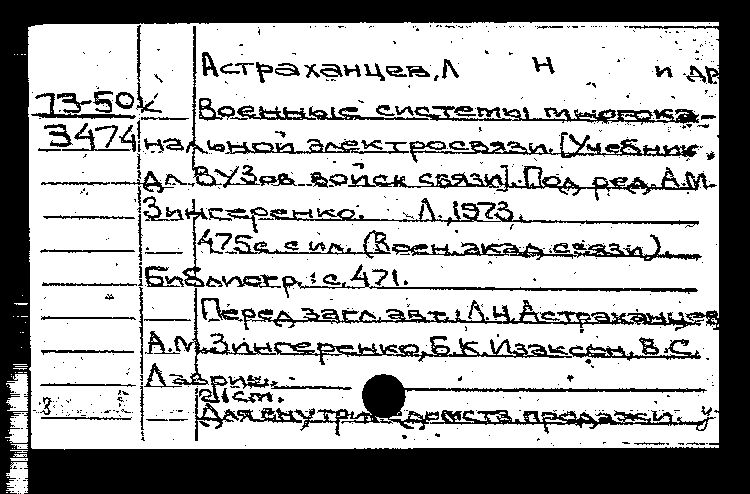 Астраханцев, Л Н и др
73-50к Военные системы многока-
3474 нальной электросвязи. [Учебник
дл ВУЗов войск связи]. Под ред. А.М.
Зингеренко. Л., 1973.
475с. с ил. (Воен. акад. связи).
Библиогр.: с. 471.
Перед загл. авт.: Л.Н. Астраханцев
А.М. Зингеренко, Б.К. Изаксон, В.С.
Лаврив.
Для внутриведомств. продажи.